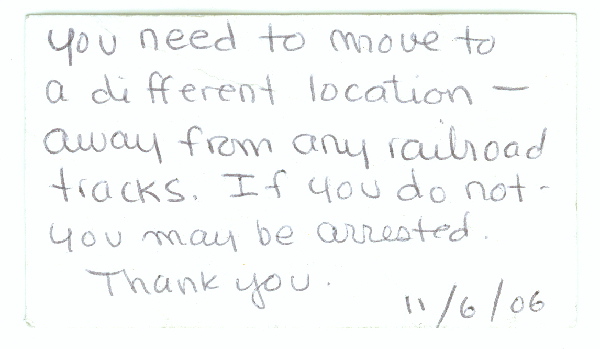 you need to move to
a different location —
away from any railroad
tracks. If you do not -
you may be arrested.
Thank you.
11/6/06